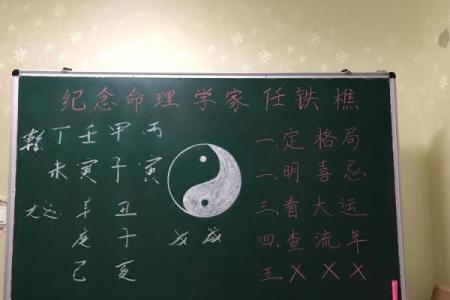 纪念命理学家任铁樵
丁壬甲丙
未寅子寅
大运: 辛丑
庚子
己亥
戊戌
一.定格局
二.明喜忌
三.看大运
四.查流年
五.XXX